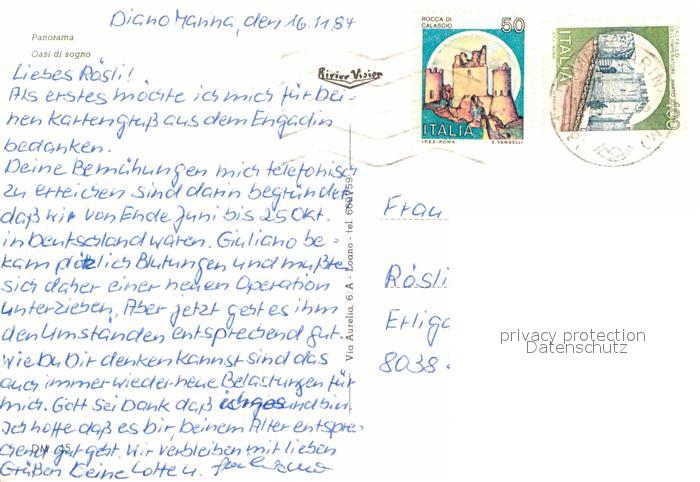 Diano Marina, den 16.11.84
Panorama
Oasi di sogno
Liebes Rösli!
Als erstes möchte ich mich für Dei-
nen Kartengruß aus dem Engadin
bedanken.
Deine Bemühungen mich telefonisch
zu erreichen sind darin begründet
daß wir von Ende Juni bis 25 Okt.
in Deutschland waren. Giuliano be-
kam plötzlich Blutungen und mußte
sich daher einer neuen Operation
unterziehen. Aber jetzt geht es ihm
den Umständen entsprechend gut.
Wie Du Dir denken kannst sind das
auch immer wieder neue Belastungen für
mich. Gott sei Dank daß ich gesund bin.
Ich hoffe daß es Dir, Deinem Alter entspre-
chend gut geht. Wir verbleiben mit lieben
Grüßen Deine Lotte u.
DM 45
Rivier Visior
Via Aurelia, 6 A - Loano - tel.
ROCCA DI
CALASCIO
50
ITALIA
I.P.Z.S.-ROMA E. VANGELLI
ITALIA
400
Frau
Rösli
Erliga
8038
privacy protection
Datenschutz